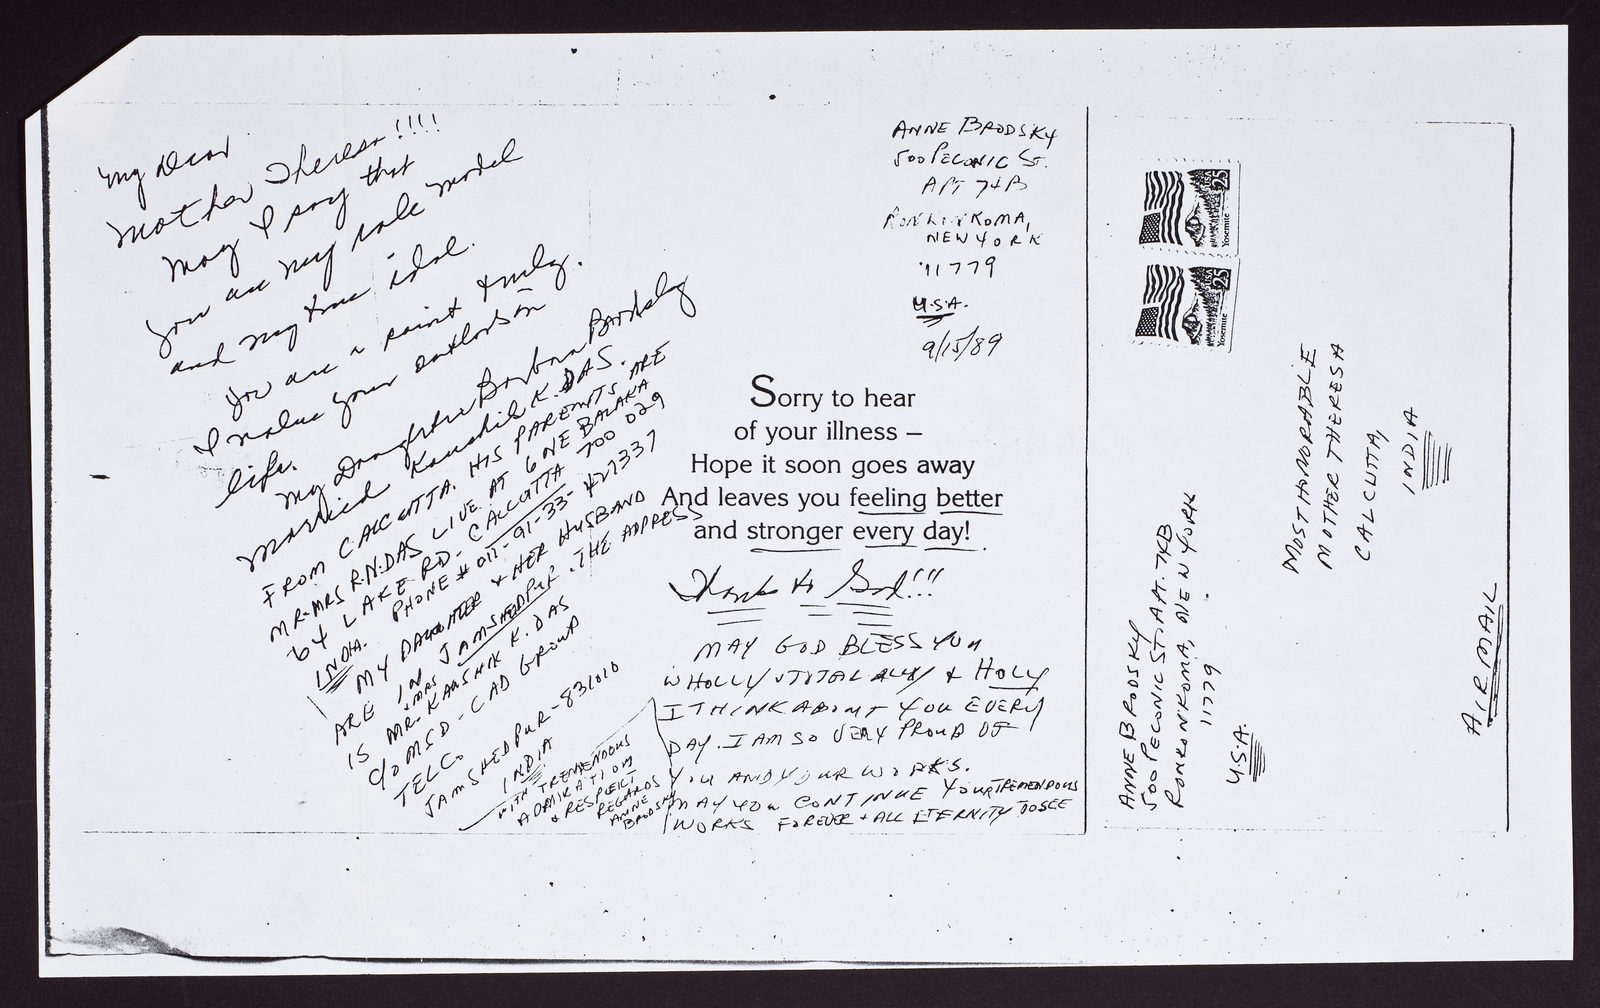 My Dear
Mother Theresa!!!!
May I say that
you are my role model
and my true idol.
You are a saint truly.
I value your outlook on
life.
My Daughter Barbara Brodsky
married Kaushik K. DAS.
FROM CALCUTTA. HIS PARENTS ARE
MR-MRS R.N.DAS LIVE AT 6 NE BALAKA
64 LAKE RD- CALCUTTA 700 029
INDIA. PHONE # 011-91-33-427337
MY DAUGHTER & HER HUSBAND
ARE IN JAMSHEDPUR. THE ADDRESS
IS MR- & MRS KAUSHIK K. DAS
C/O MSD - CAD GROUP
TELCO
JAMSHEDPUR-831010
INDIA
WITH TREMENDOUS
ADMIRATION
& RESPECT
REGARDS
ANNE
BRODSKY
ANNE BRODSKY
500 PECONIC ST.
APT 74B
RONKONKOMA,
NEW YORK
11779
U.S.A.
9/15/89
Sorry to hear
of your illness –
Hope it soon goes away
And leaves you feeling better
and stronger every day!
Thanks to God!!!
MAY GOD BLESS YOU
WHOLLY & TOTALLY & HOLY
I THINK ABOUT YOU EVERY
DAY. I AM SO VERY PROUD OF
YOU AND YOUR WORKS.
MAY YOU CONTINUE YOUR TREMENDOUS
WORKS FOREVER & ALL ETERNITY
25 USA
Yosemite
25 USA
Yosemite
ANNE BRODSKY
500 PECONIC ST. APT. 7KB
RONKONKOMA, NEW YORK
11779
U.S.A.
MOST HONORABLE
MOTHER THERESA
CALCUTTA,
INDIA
AIR MAIL